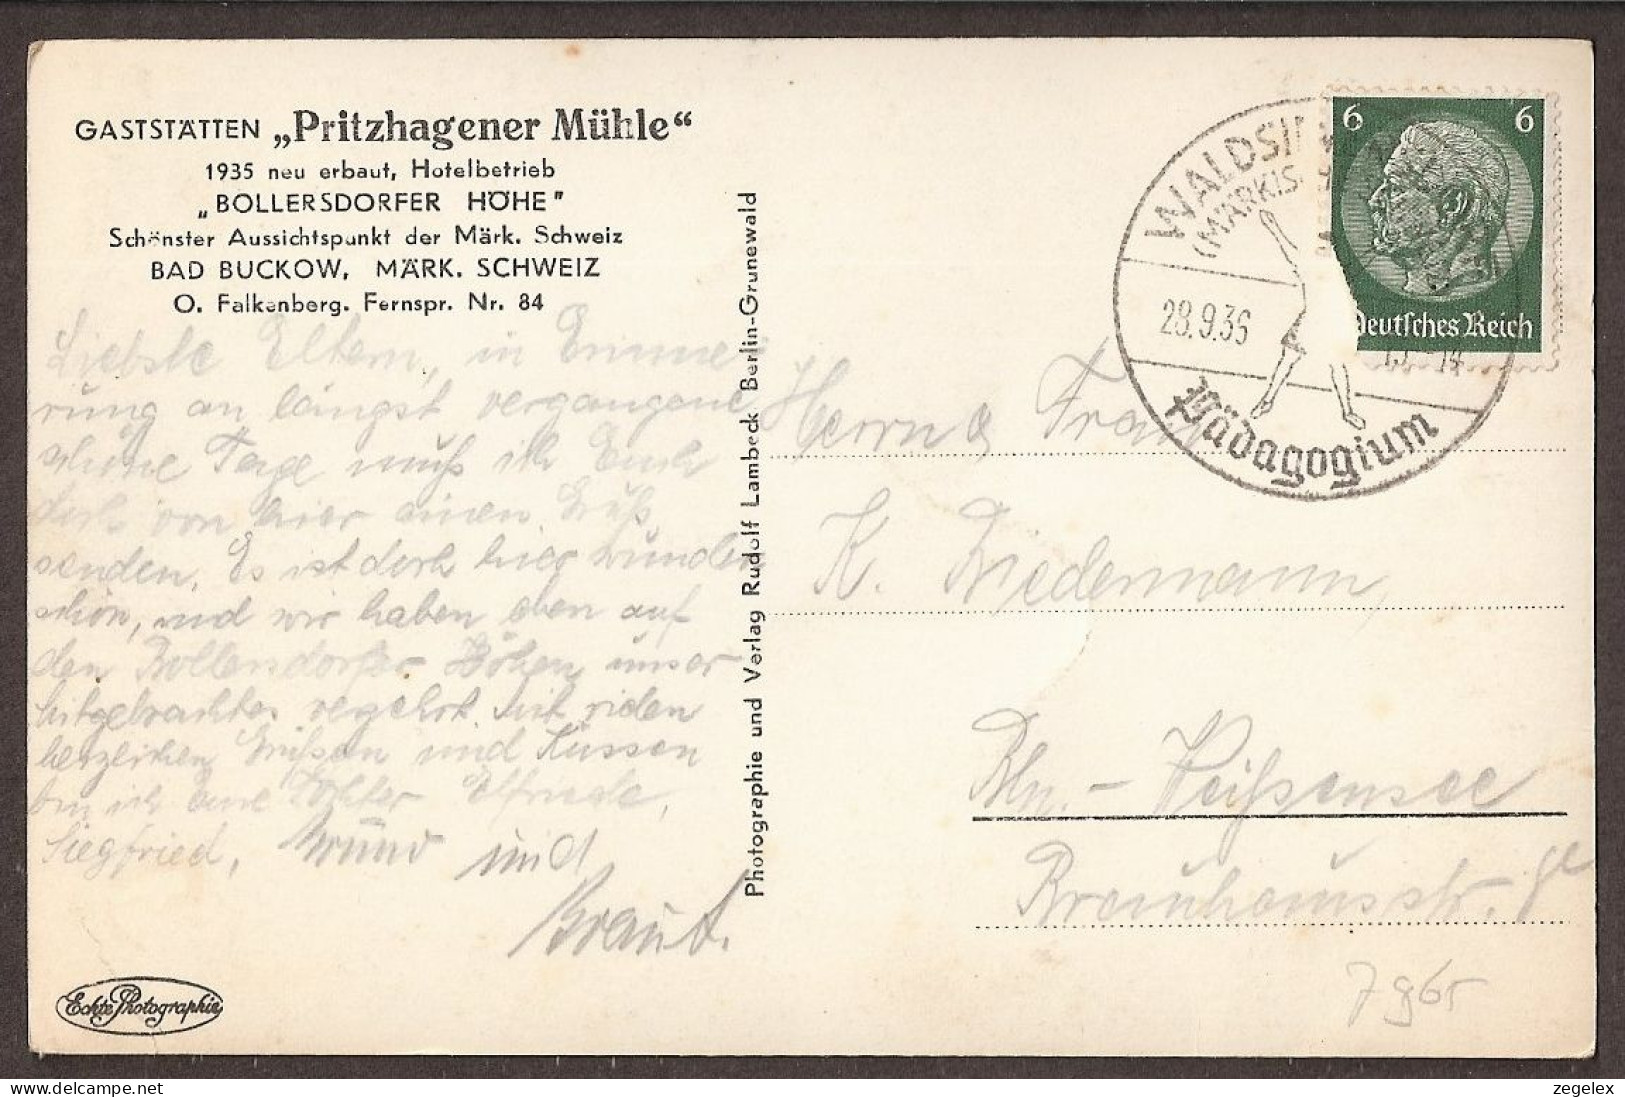 GASTSTÄTTEN „Pritzhagener Mühle“
1935 neu erbaut, Hotelbetrieb
„BOLLERSDORFER HÖHE"
Schönster Aussichtspunkt der Märk. Schweiz
BAD BUCKOW, MÄRK. SCHWEIZ
O. Falkenberg. Fernspr. Nr. 84
Liebste Eltern, in Erinne-
rung an längst vergangene
schöne Tage muß ich Euch
doch von hier einen Gruß
senden. Es ist doch hier wunder
schön, und wir haben eben auf
den Bollersdorfer Höhen unser
Mitgebrachtes verzehrt. Mit vielen
herzlichen Grüßen und Küssen
bin ich eure Tochter Elfriede,
Siegfried, Bruno und
Braut.
Echte Photographie
Photographie und Verlag Rudolf Lambeck Berlin-Grunewald
WALDSI
(MÄRKIS
28.9.36
14
Pädagogium
6 6
Deutsches Reich
Herrn & Frau
K. Wiedemann,
Bln. - Weißensee
Brauhausstr.
zegelex